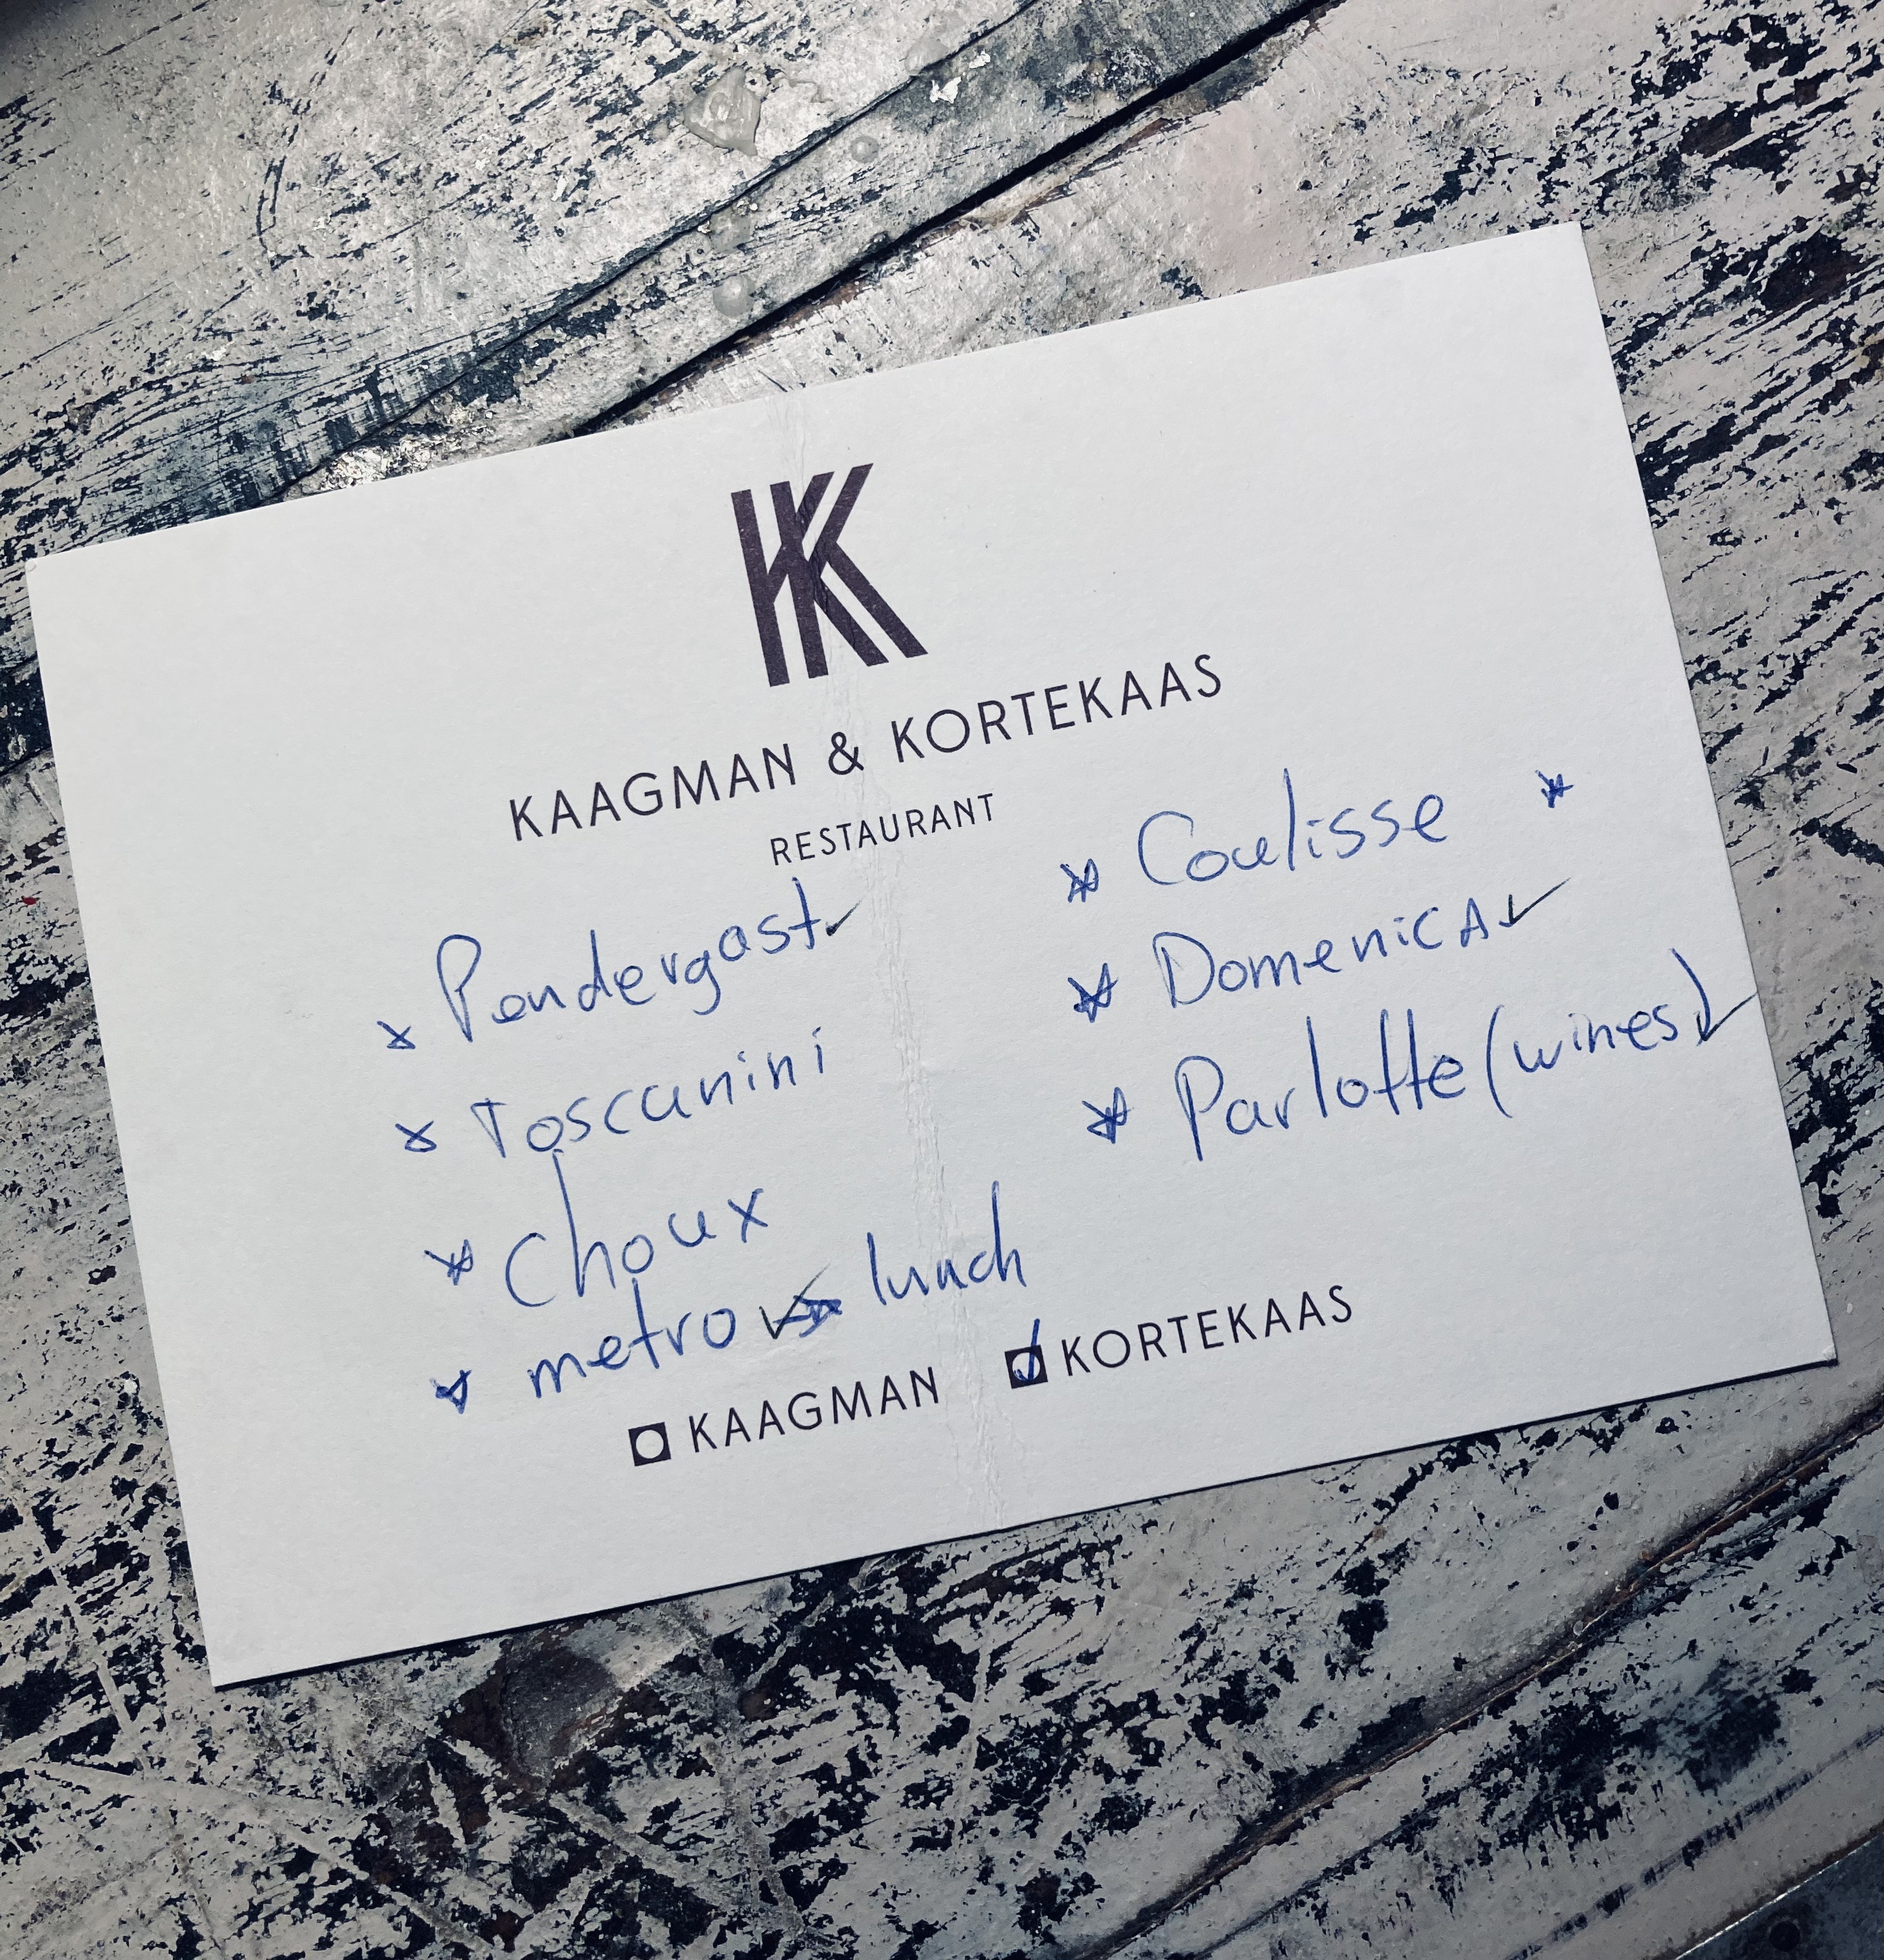 KK
KAAGMAN & KORTEKAAS
RESTAURANT
* Pendergast ✓
* Toscanini
* Choux
* metro ✓ → lunch
* Coulisse *
* Domenica ✓
* Parlotte (wines) ✓
KAAGMAN ✓ KORTEKAAS